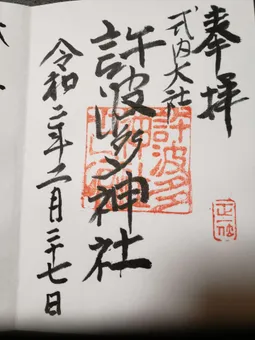 奉拝
式内大社
許波多神社
令和二年二月二十七日
許波多